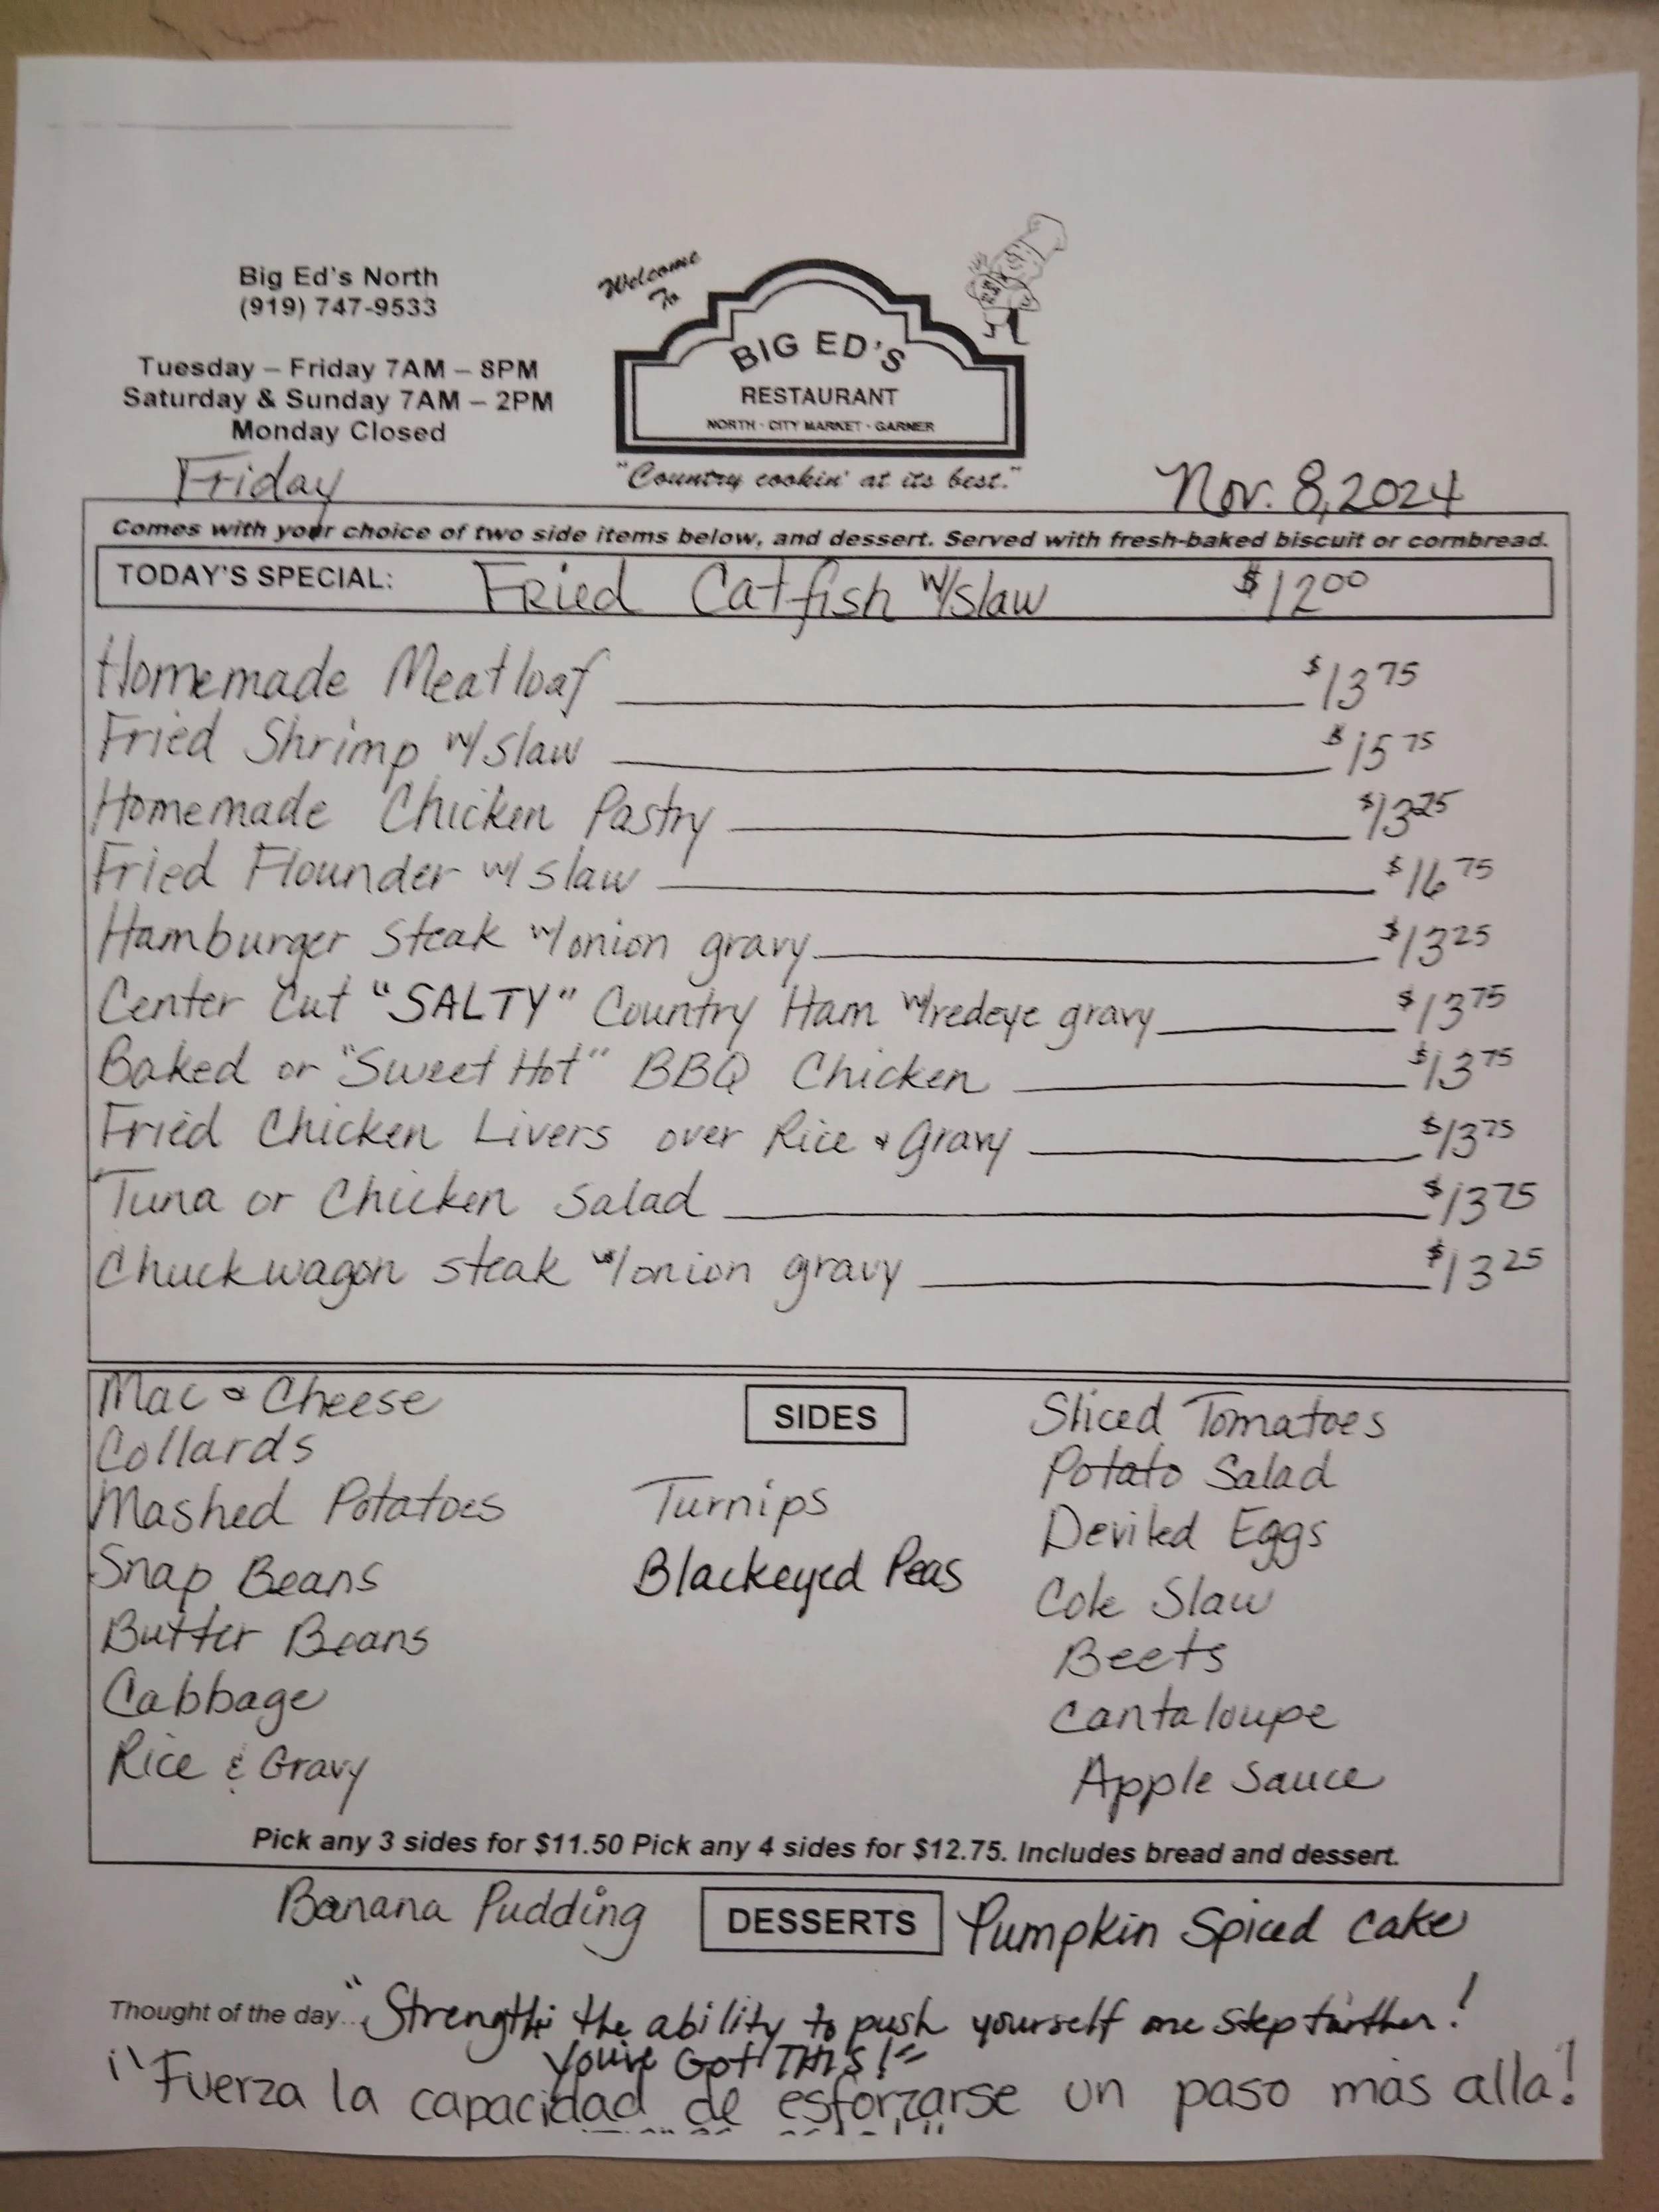 Big Ed's North
(919) 747-9533
Tuesday – Friday 7AM – 8PM
Saturday & Sunday 7AM – 2PM
Monday Closed
Welcome
To
BIG ED'S
RESTAURANT
NORTH · CITY MARKET · GARNER
"Country cookin' at its best."
Friday
Nov. 8, 2024
Comes with your choice of two side items below, and dessert. Served with fresh-baked biscuit or cornbread.
TODAY'S SPECIAL: Fried Catfish w/slaw $12.00
Homemade Meatloaf $13.75
Fried Shrimp w/slaw $15.75
Homemade Chicken Pastry $13.25
Fried Flounder w/slaw $16.75
Hamburger Steak w/onion gravy $13.25
Center Cut "SALTY" Country Ham w/redeye gravy $13.75
Baked or "Sweet Hot" BBQ Chicken $13.75
Fried Chicken Livers over Rice & Gravy $13.75
Tuna or Chicken Salad $13.75
Chuckwagon steak w/onion gravy $13.25
SIDES
Mac & Cheese
Collards
Mashed Potatoes
Snap Beans
Butter Beans
Cabbage
Rice & Gravy
Turnips
Blackeyed Peas
Sliced Tomatoes
Potato Salad
Deviled Eggs
Cole Slaw
Beets
Cantaloupe
Apple Sauce
Pick any 3 sides for $11.50 Pick any 4 sides for $12.75. Includes bread and dessert.
Banana Pudding DESSERTS Pumpkin Spiced Cake
Thought of the day... "Strength: the ability to push yourself one step further!
You've Got THIS!"
¡"Fuerza la capacidad de esforzarse un paso mas alla!